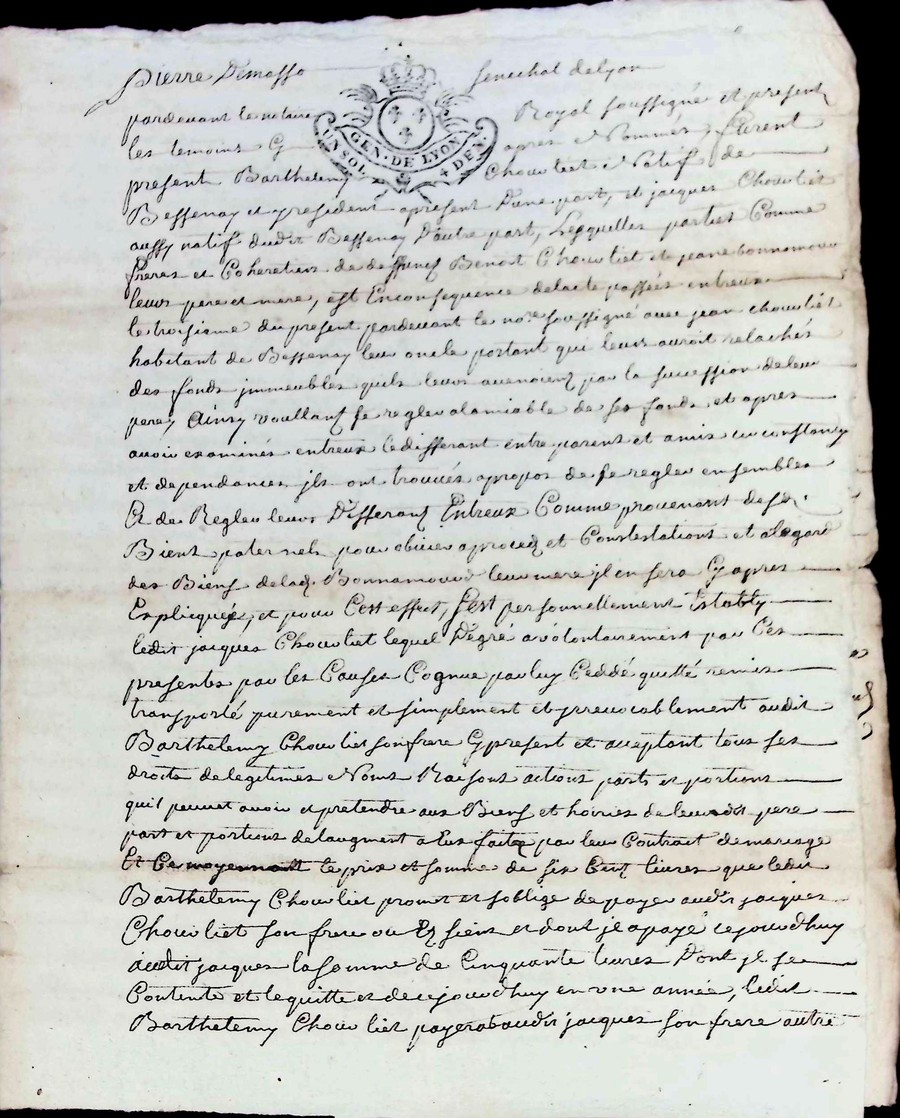 Pierre Demasso Senechal de lyon
GEN. DE LYON
UN SOL 4 DEN.
pardevant le notaire Royal soussigné et present
les temoins Cy apres Nommés furent
present Barthelemy Chouvliet Natif de
Bessenay et y resident apresent D'une part, et jacques Chouvliet
aussy natif dudit Bessenay D'autre part, Lesquelles parties Comme
freres et Coheretiers de deffunct Benoist Chouvliet et jeane bonnamour
leurs pere et mere, est Enconsequence delacte passées entreux
le troisieme du present pardevant le nore soussigné avec jean chouvliet
habitant de Bessenay leur oncle portant qui leurs auroit relachés
des fonds immeubles quils leurs avenoient par la sucession deleur
pere, Ainsy voullant se regler alamiable de ses fonds et apres
avoir examinés entreux ledifferant entre parent et amis circonstances
et dependances jls ont trouvés apropos de se regler ensembles
Et de Regler leurs Differant Entreux Comme provenant de ses
Bient paternels pour obvier aproces et Constestations et alegard
des Biens delad. Bonnamour leur mere jl en sera Cy apres
Expliquée, et pour Cest effect, sest personnellement Estably
ledit jacques Chouvliet lequel Degré avolontairement par Ces
presents par les Causes Cognue par luy Ceddé quitté remis
transporté purement et simplement et jrrevocablement audit
Barthelemy Chouvliet son frere Cy present et aceptant tous ses
droits de legitimes Noms Raisons actions parts et portions
quil peuvet avoir et pretendre aux Biens et hoiries de leursdit pere
part et portions de laugment a Eux faite par leur Contract de mariage
Et Ce moyennant le prix et somme de six Cent livres que ledit
Barthelemy Chouvliet promet et soblige de payer audit jacques
Chouvliet son frere ou Es siens et dont jl apayé cejourdhuy
audit jacques la somme de Cinquante livres Dont jl se
Contente et lequitte et de cejourdhuy en une année, ledit
Barthelemy Chouvliet payera audit jacques son frere autre